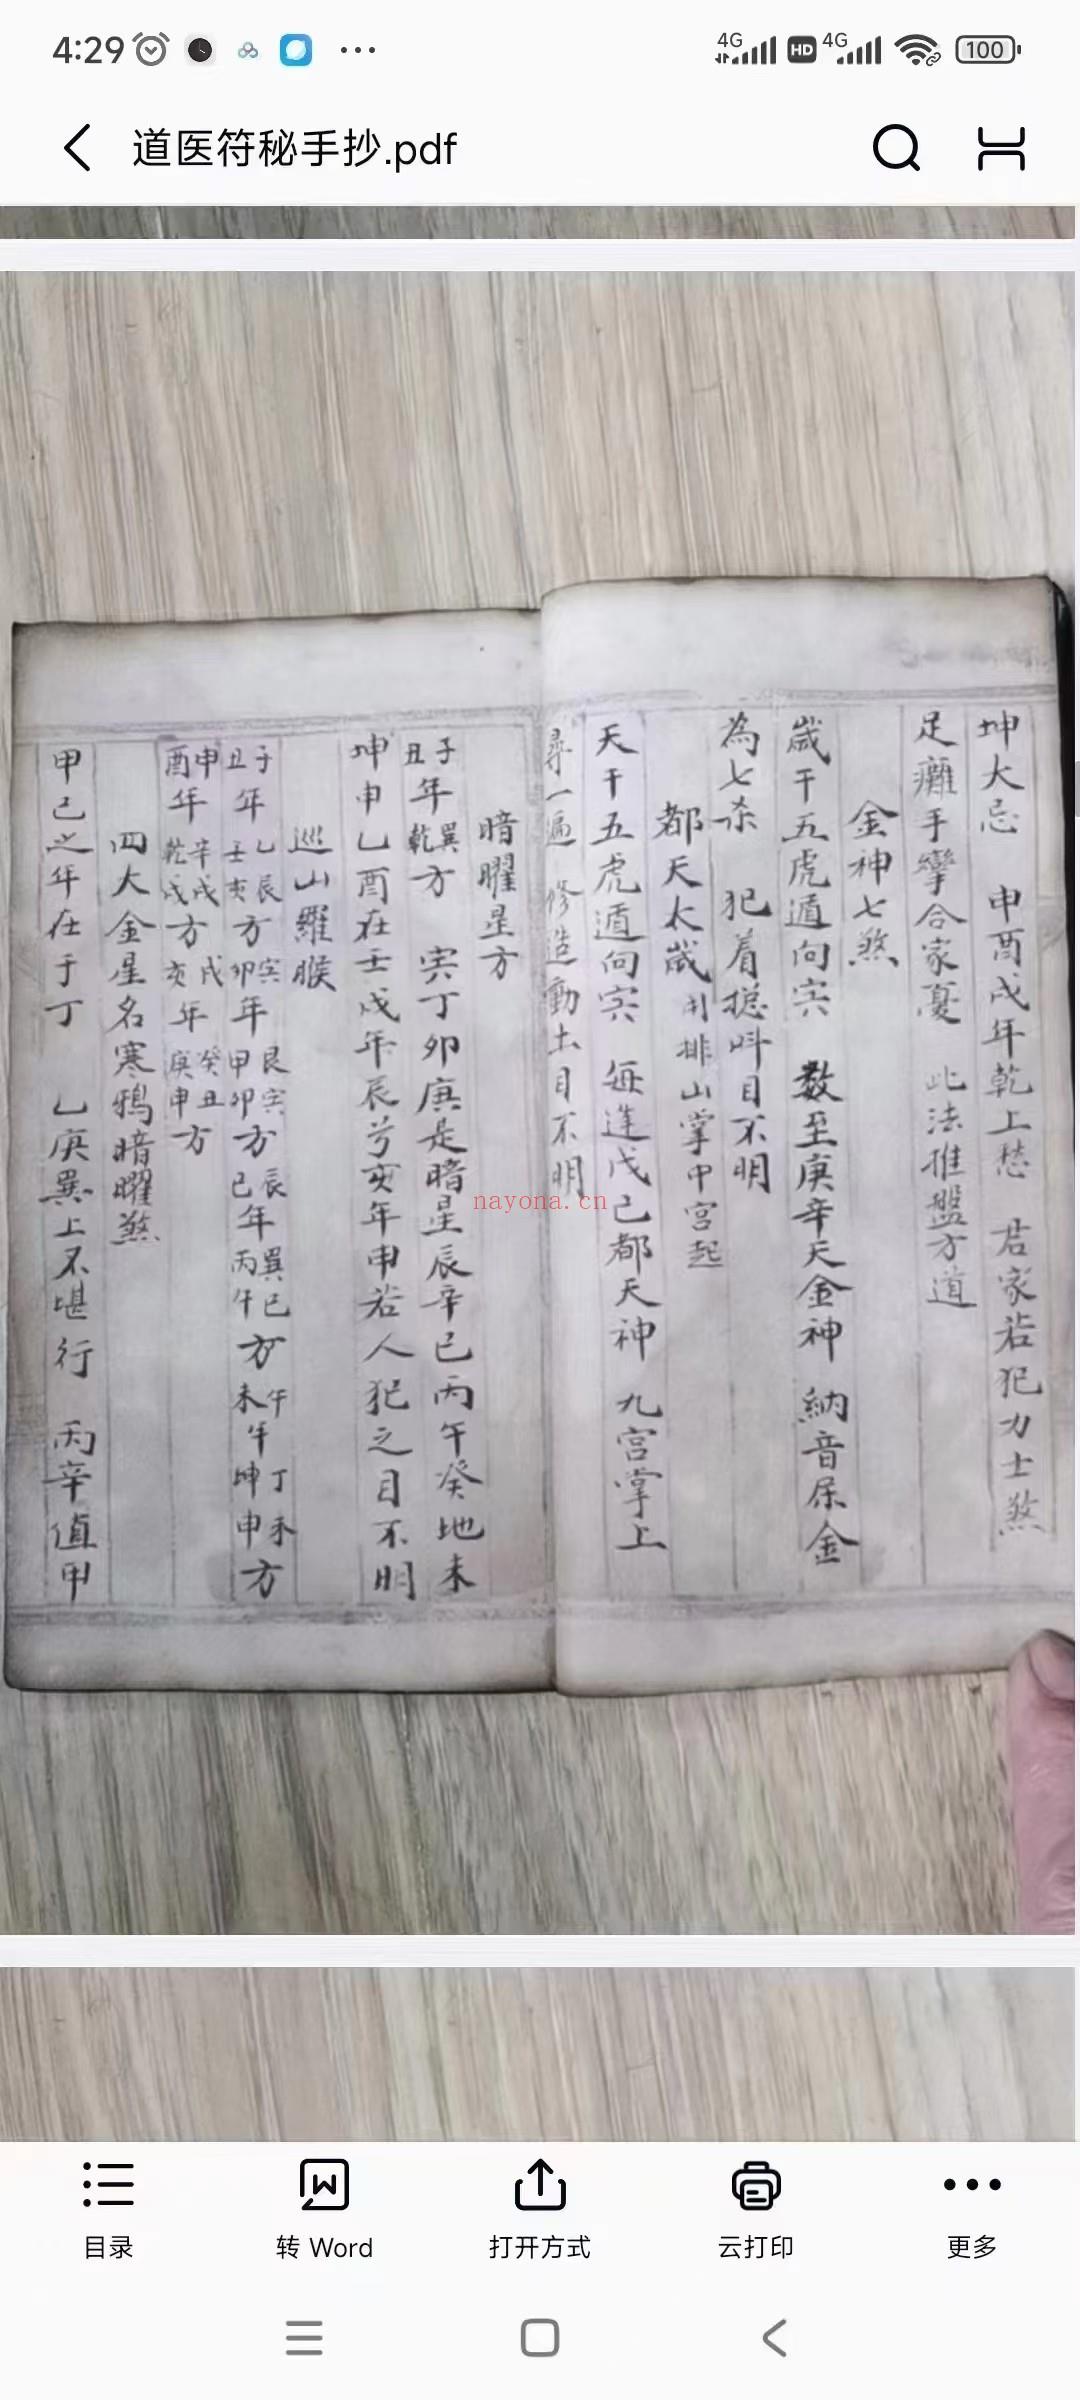 4:29
4G HD 4G 100
道医符秘手抄.pdf
坤大忌 申酉戌年乾上愁 君家若犯力士煞
足癱手攣合家憂 此法推盤方道
金神七煞
歲干五虎遁向寅 数至庚辛天金神 納音屬金
為七杀 犯着揔呌目不明
都天太歲 用排山掌中宮起
天干五虎遁向寅 每逢戊己都天神 九宮掌上
尋一遍 修造動土目不明
暗曜星方
子丑年巽乾方 寅丁卯庚是暗星辰辛巳丙午癸地未
坤申乙酉在壬戌年辰兮亥年甲若人犯之目不明
巡山羅睺
子丑年乙辰壬亥方寅卯年艮寅甲卯方辰巳年巽巳丙午方午未年丁未坤申方
申酉年辛戌乾戌方戌亥年癸丑庚申方
四大金星名寒鴉暗曜煞
甲己之年在于丁 乙庚巽上不堪行 丙辛值甲
nayona.cn
目录
转 Word
打开方式
云打印
更多